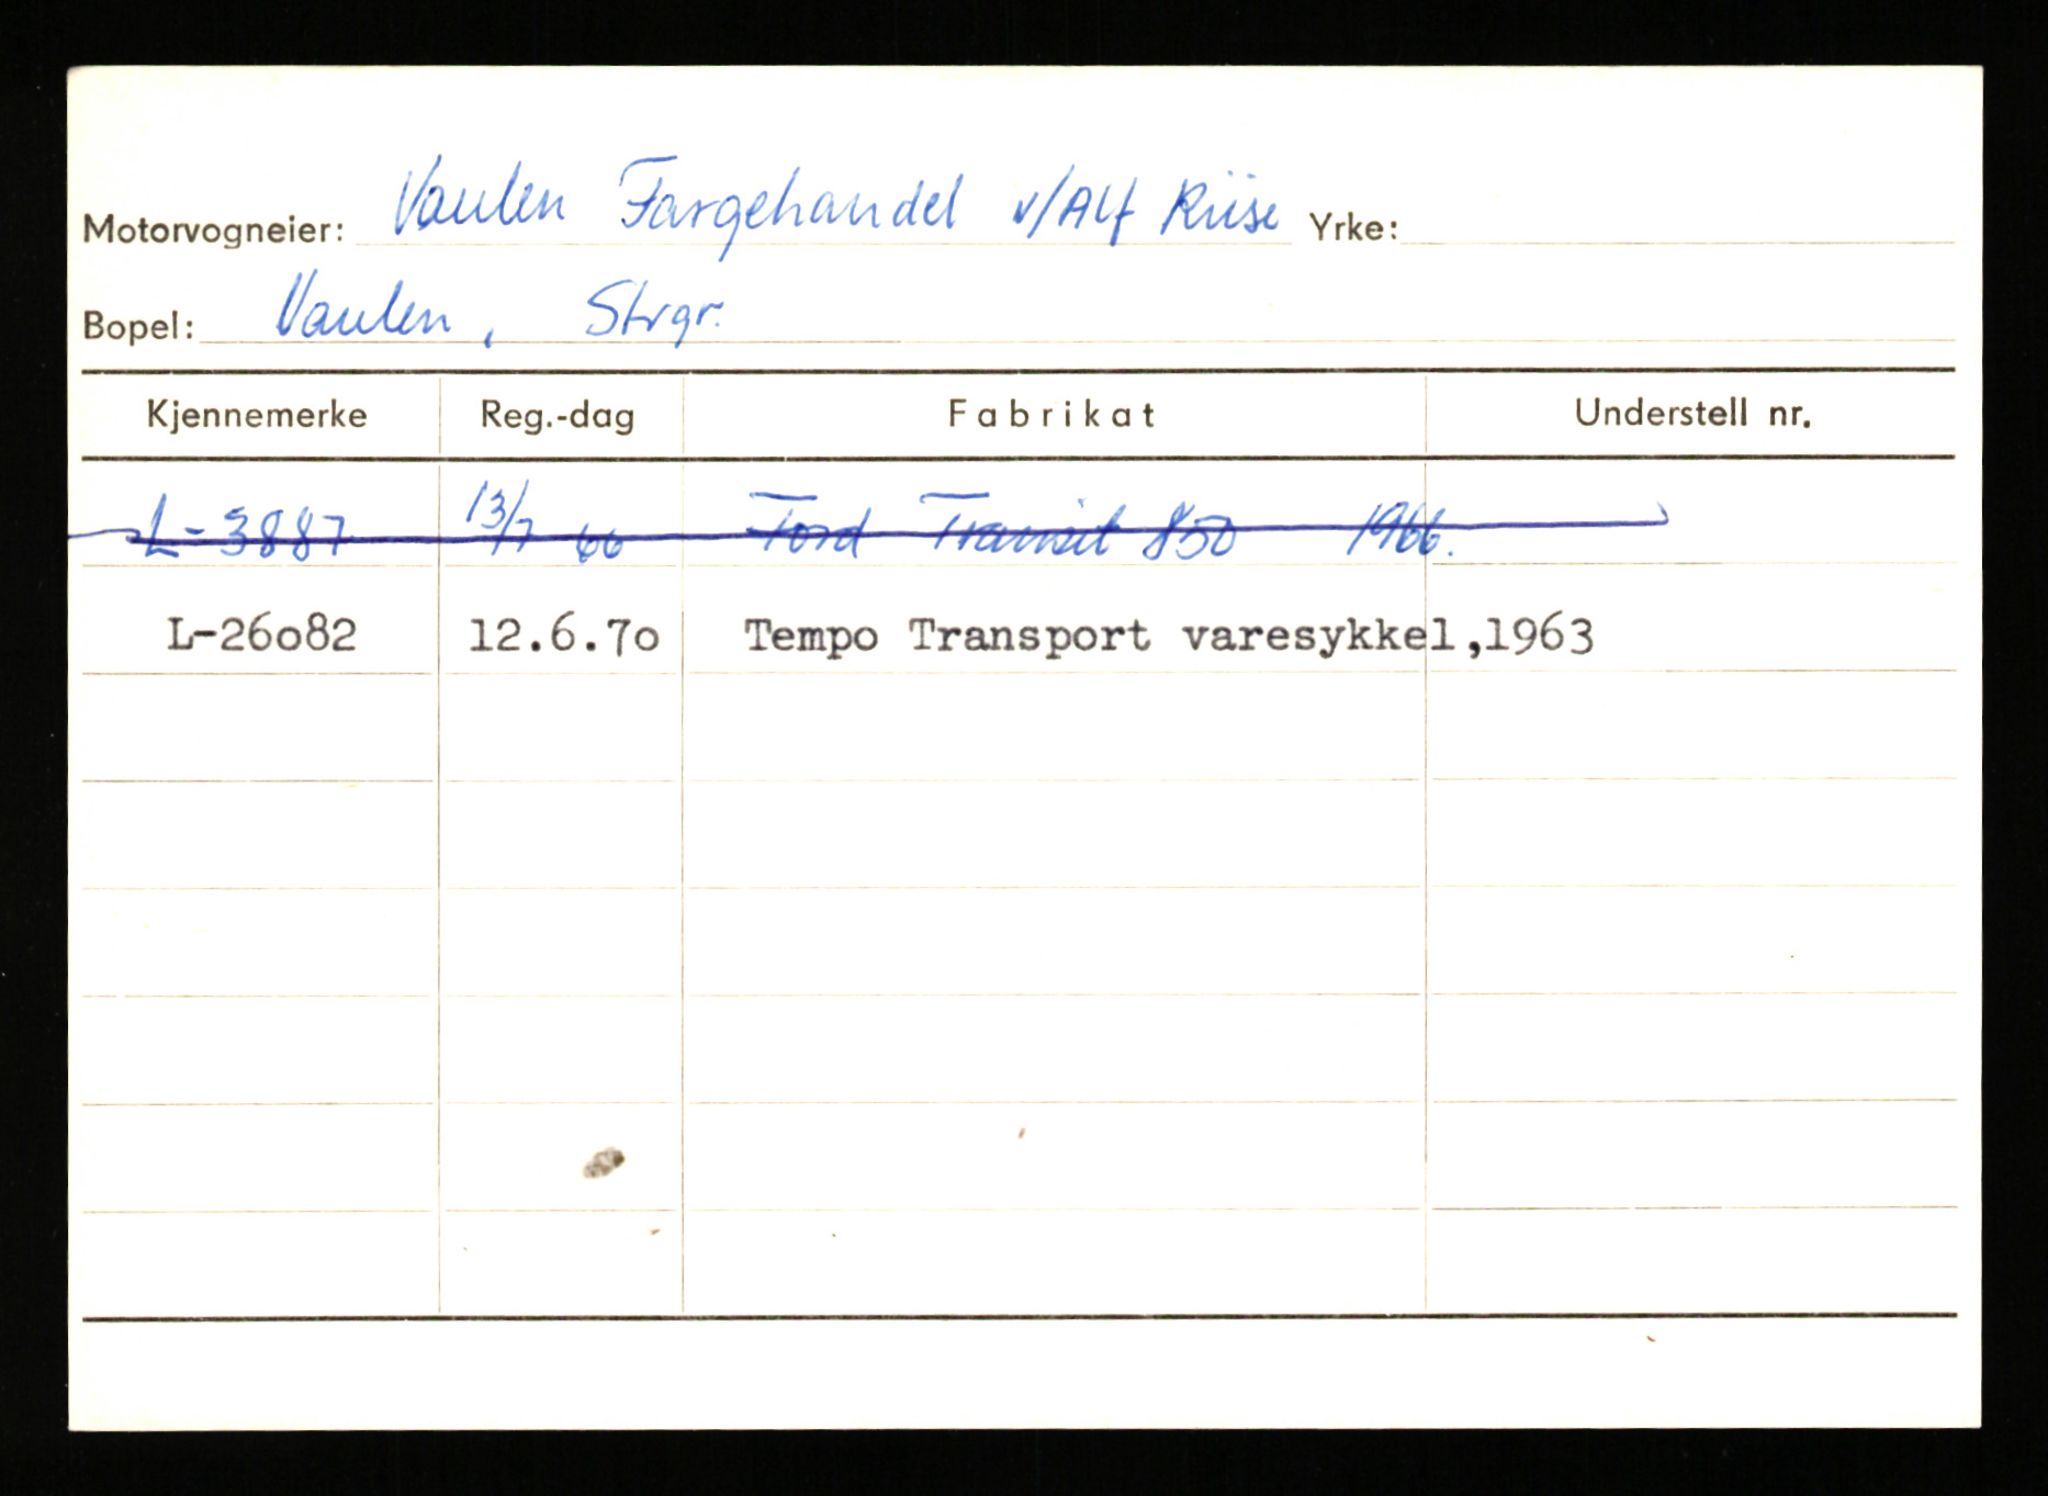 Motorvogneier: Vaulen Fargehandel v/Alf Riise Yrke:
Bopel: Vaulen, Strgr.
Kjennemerke Reg.-dag Fabrikat Understell nr.
L-3887 13/7 66 Ford Transit 850 1966.
L-26o82 12.6.7o Tempo Transport varesykkel,1963